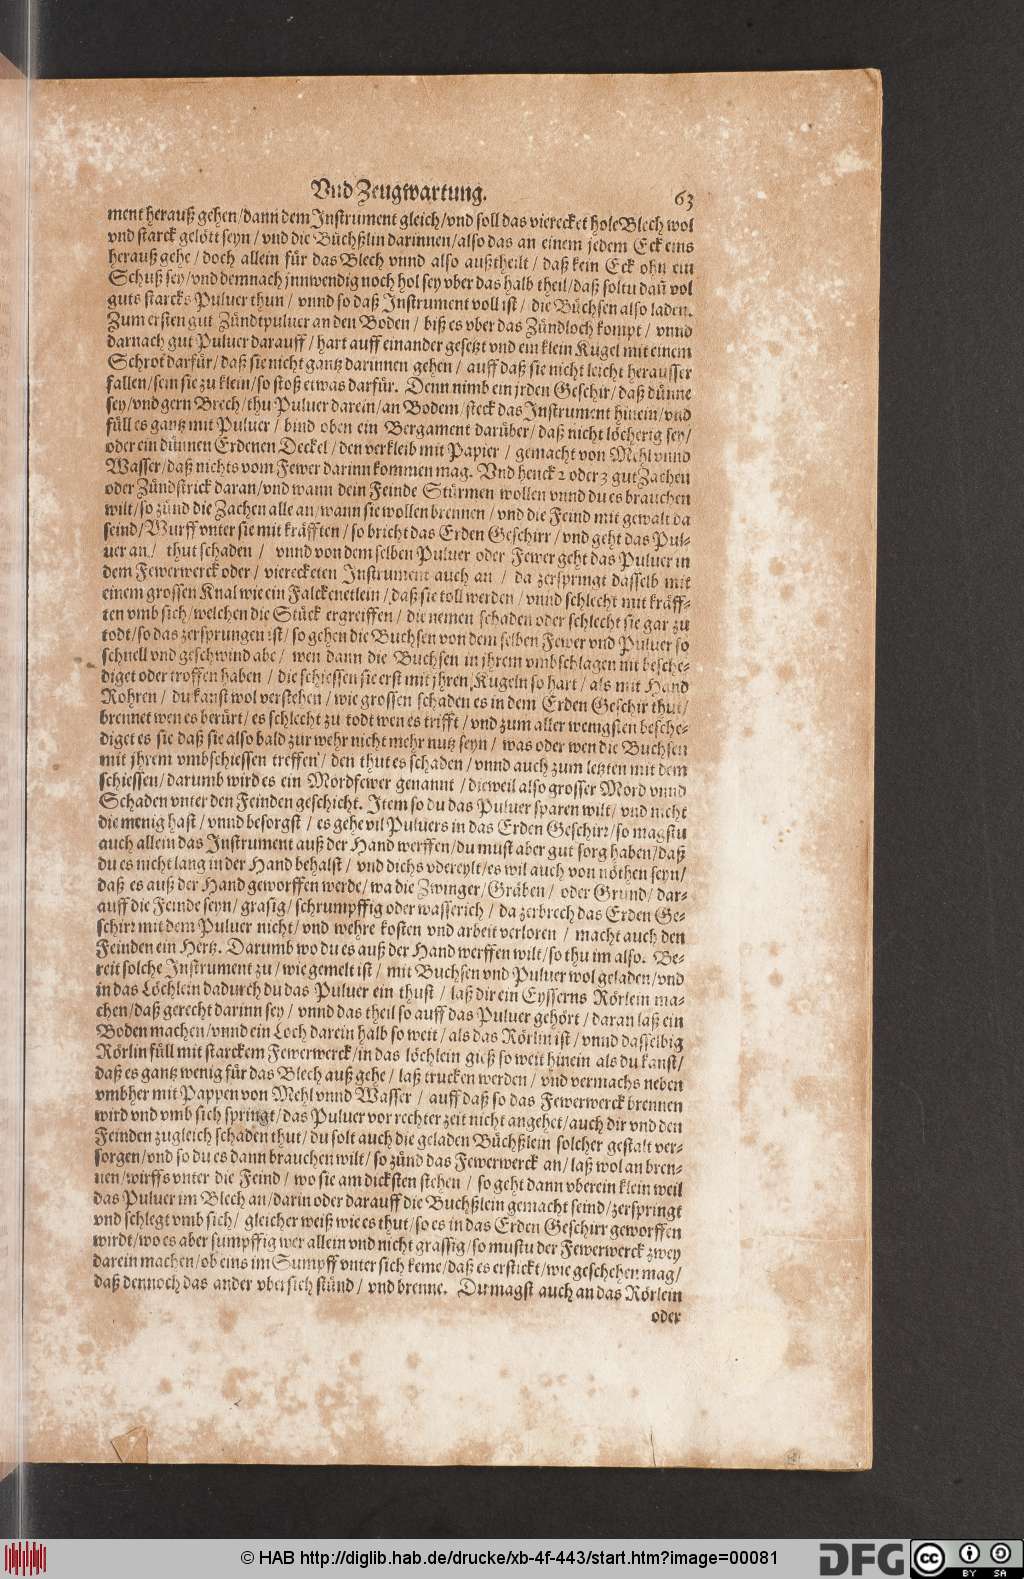 Vnd Zeugwartung. 63
ment herauß gehen/dann dem Instrument gleich/vnd soll das vierecket hole Blech wol
vnd starck gelött seyn/vnd die Büchßlin darinnen/also das an einem jedem Eck eins
herauß gehe/doch allein für das Blech vnnd also außtheilt/daß kein Eck ohn ein
Schuß sey/vnd demnach jnnwendig noch hol sey vber das halb theil/daß soltu dañ vol
guts starcks Puluer thun/vnnd so daß Instrument voll ist/die Büchsen also laden.
Zum ersten gut Zündtpuluer an den Boden/biß es vber das Zündloch kompt/vnnd
darnach gut Puluer darauff/hart auff einander gesetzt vnd ein klein Kugel mit einem
Schrot darfür/daß sie nicht gantz darinnen gehen/auff daß sie nicht leicht herausser
fallen/sein sie zu klein/so stoß etwas darfür. Denn nimb ein jrden Geschir/daß dünne
sey/vnd gern Brech/thu Puluer darein/an Bodem/steck das Instrument hinein/vnd
füll es gantz mit Puluer/bind oben ein Bergament darüber/daß nicht löcherig sey/
oder ein dünnen Erdenen Deckel/den verkleib mit Papier/gemacht von Mehl vnnd
Wasser/daß nichts vom Fewer darinn kommen mag. Vnd henck 2 oder 3 gut Zachen
oder Zündstrick daran/vnd wann dein Feinde Stürmen wollen vnnd du es brauchen
wilt/so zünd die Zachen alle an/wann sie wollen brennen/vnd die Feind mit gewalt da
seind/Wurff vnter sie mit kräfften/so bricht das Erden Geschirr/vnd geht das Pul-
uer an/thut schaden/vnnd von dem selben Puluer oder Fewer geht das Puluer in
dem Fewerwerck oder/vierecketen Instrument auch an/da zerspringt dasselb mit
einem grossen Knal wie ein Falckenetlein/daß sie toll werden/vnnd schlecht mit kräff-
ten vmb sich/welchen die Stück ergreiffen/die nemen schaden oder schlecht sie gar zu
todt/so das zersprungen ist/so gehen die Buchsen von dem selben Fewer vnd Puluer so
schnell vnd geschwind abe/wen dann die Buchsen in jhrem vmbschlagen nit besche-
diget oder troffen haben/die schiessen sie erst mit jhren Kugeln so hart/als mit Hand
Rohren/du kanst wol verstehen/wie grossen schaden es in dem Erden Geschir thut/
brennet wen es berürt/es schlecht zu todt wen es trifft/vnd zum aller wenigsten besche-
diget es sie daß sie also bald zur wehr nicht mehr nutz seyn/was oder wen die Buchsen
mit jhrem vmbschiessen treffen/den thut es schaden/vnnd auch zum letzten mit dem
schiessen/darumb wird es ein Mordfewer genannt/dieweil also grosser Mord vnnd
Schaden vnter den Feinden geschicht. Item so du das Puluer sparen wilt/vnd nicht
die menig hast/vnnd besorgst/es gehe vil Puluers in das Erden Geschirr/so magstu
auch allein das Instrument auß der Hand werffen/du must aber gut sorg haben/daß
du es nicht lang in der Hand behalst/vnd dichs vbereylt/es wil auch von nöthen seyn/
daß es auß der Hand geworffen werde/wa die Zwinger/Gräben/oder Grund/dar-
auff die Feinde seyn/grasig/schrumpffig oder wasserich/da zerbrech das Erden Ge-
schirr mit dem Puluer nicht/vnd wehre kosten vnd arbeit verloren/macht auch den
Feinden ein Hertz. Darumb wo du es auß der Hand werffen wilt/so thu im also. Be-
reit solche Instrument zu/wie gemelt ist/mit Buchsen vnd Puluer wol geladen/vnd
in das Löchlein dadurch du das Puluer ein thust/laß dir ein Eysserns Rörlein ma-
chen/daß gerecht darinn sey/vnnd das theil so auff das Puluer gehört/daran laß ein
Boden machen/vnnd ein Loch darein halb so weit/als das Rörlin ist/vnnd dasselbig
Rörlin füll mit starckem Fewerwerck/in das löchlein gieß so weit hinein als du kanst/
daß es gantz wenig für das Blech auß gehe/laß trucken werden/vnd vermachs neben
vmbher mit Pappen von Mehl vnnd Wasser/auff daß so das Fewerwerck brennen
wird vnd vmb sich springt/das Puluer vor rechter zeit nicht angehet/auch dir vnd den
Feinden zugleich schaden thut/du solt auch die geladen Büchßlein solcher gestalt ver-
sorgen/vnd so du es dann brauchen wilt/so zünd das Fewerwerck an/laß wol an bren-
nen/wirffs vnter die Feind/wo sie am dicksten stehen/so geht dann vber ein klein weil
das Puluer im Blech an/darin oder darauff die Buchßlein gemacht seind/zerspringt
vnd schlegt vmb sich/gleicher weiß wie es thut/so es in das Erden Geschirr geworffen
wirdt/wo es aber sumpffig wer allein vnd nicht grassig/so mustu der Fewerwerck zwey
darein machen/ob eins im Sumpff vnter sich keme/daß es erstickt/wie geschehen mag/
daß dennoch das ander vber sich stünd/vnd brenne. Du magst auch an das Rörlein
oder
© HAB http://diglib.hab.de/drucke/xb-4f-443/start.htm?image=00081
DFG
cc BY SA